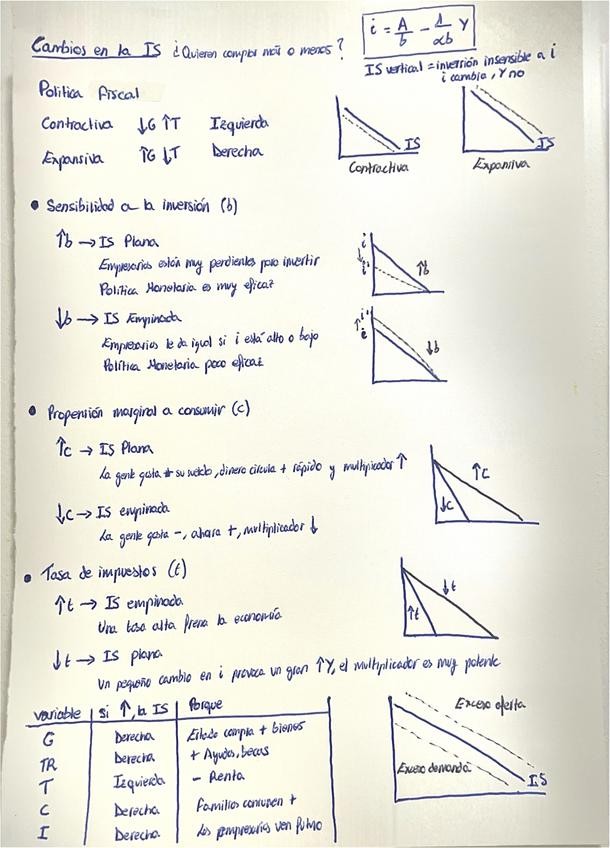 Cambios en la IS ¿Quieren comprar más o menos?
i = A/b - 1/αb Y
IS vertical = inversión insensible a i
i cambia, Y no
Política Fiscal
Contractiva ↓G ↑T Izquierda
Expansiva ↑G ↓T Derecha
IS
Contractiva
IS
Expansiva
• Sensibilidad a la inversión (b)
↑b → IS Plana
Empresarios están muy pendientes para invertir
Política Monetaria es muy eficaz
i
↓
i'
↑b
↓b → IS Empinada
Empresarios le da igual si i está alto o bajo
Política Monetaria poco eficaz
i'
↑
i
↓b
• Propensión marginal a consumir (c)
↑c → IS Plana
La gente gasta + su sueldo, dinero circula + rápido y multiplicador ↑
↓c → IS empinada
La gente gasta -, ahorra +, multiplicador ↓
↑C
↓C
• Tasa de impuestos (t)
↑t → IS empinada
Una tasa alta frena la economía
↓t → IS plana
Un pequeño cambio en i provoca un gran ↑Y, el multiplicador es muy potente
↓t
↑t
variable | si ↑, la IS | Porque
G Derecha Estado compra + bienes
TR Derecha + Ayudas, becas
T Izquierda - Renta
C Derecha Familias consumen +
I Derecha Los empresarios ven
Exceso oferta
Exceso demanda
IS